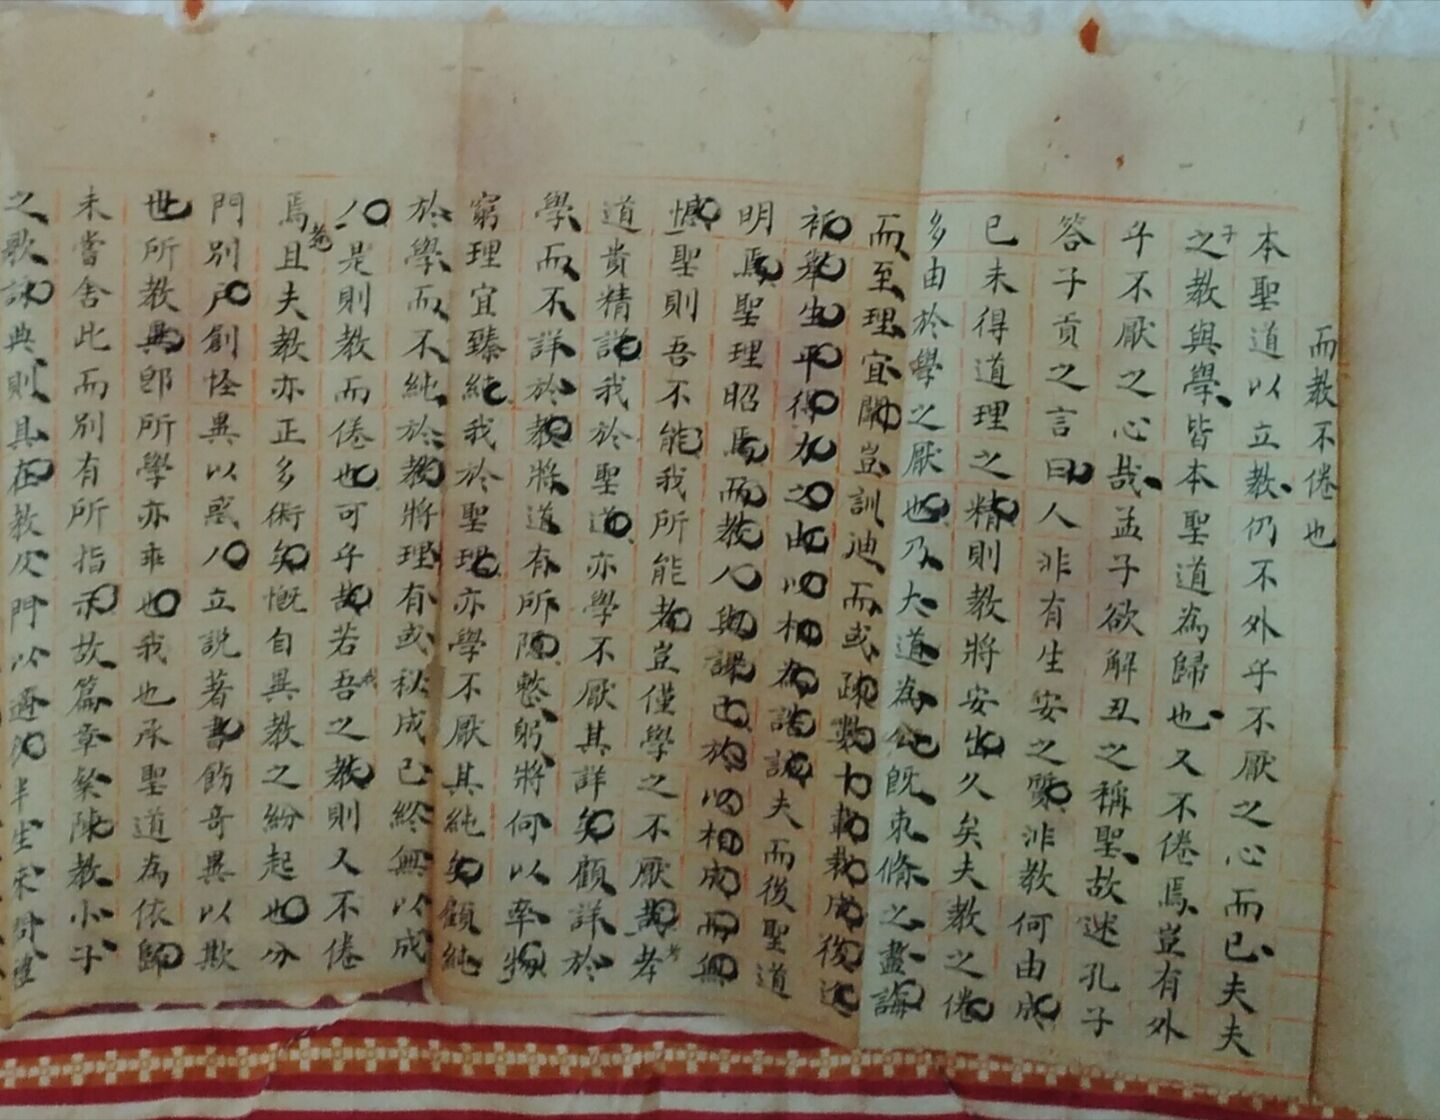 而教不倦也
本聖道以立教仍不外乎不厭之心而已夫夫
子之教與學皆本聖道為歸也又不倦焉豈有外
乎不厭之心哉孟子欲解丑之稱聖故述孔子
答子貢之言曰人非有生安之質非教何由成
已未得道理之精則教將安出久矣夫教之倦
多由於學之厭也乃大道為公既朿條之盡誨
而至理宜闡豈訓迪而或疏數十載栽成後
祈舉生平得力之由以相為誥誡夫而後聖道
明焉聖理昭焉而教人與課已於以相成而無
憾聖則吾不能我所能者豈僅學之不厭哉孝
道貴精詳我於聖道亦學不厭其詳矣顧詳於
學而不詳於教將道有所隱憗躬將何以率物
窮理宜臻純我於聖理亦學不厭其純矣顧純
於學而不純於教將理有或私成已終無以成
人是則教而倦也可乎哉若吾之教則又不倦
焉且夫教亦正多術矣慨自異教之紛起也分
門別戶創怪異以惑人立說著書飾奇異以欺
世所教異卽所學亦乖也我也承聖道為依歸
未嘗舍此而別有所指示故篇章條陳教小子
之歌詠典則具在教及門以